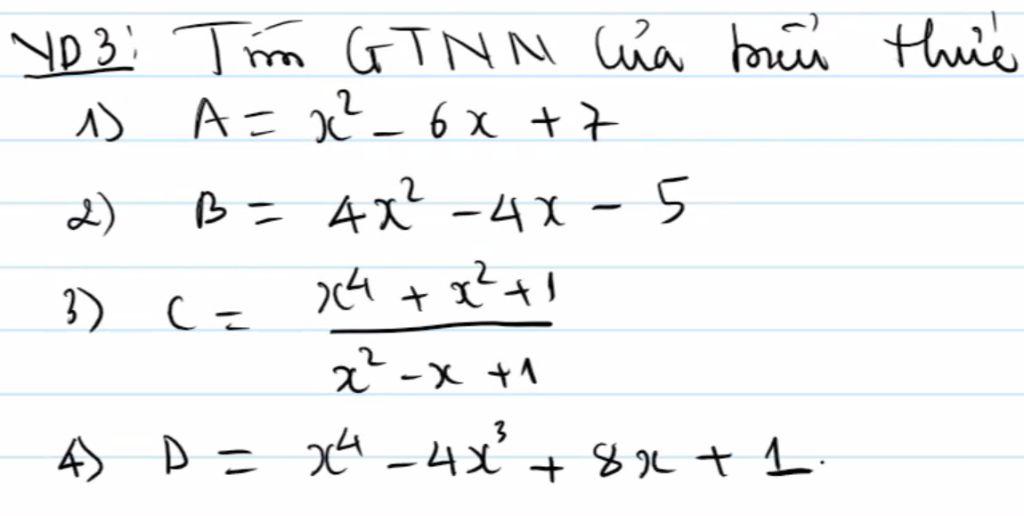 VD3: Tìm GTNN của biểu thức
1) A = x² - 6x + 7
2) B = 4x² - 4x - 5
3) C = (x⁴ + x² + 1) / (x² - x + 1)
4) D = x⁴ - 4x³ + 8x + 1.